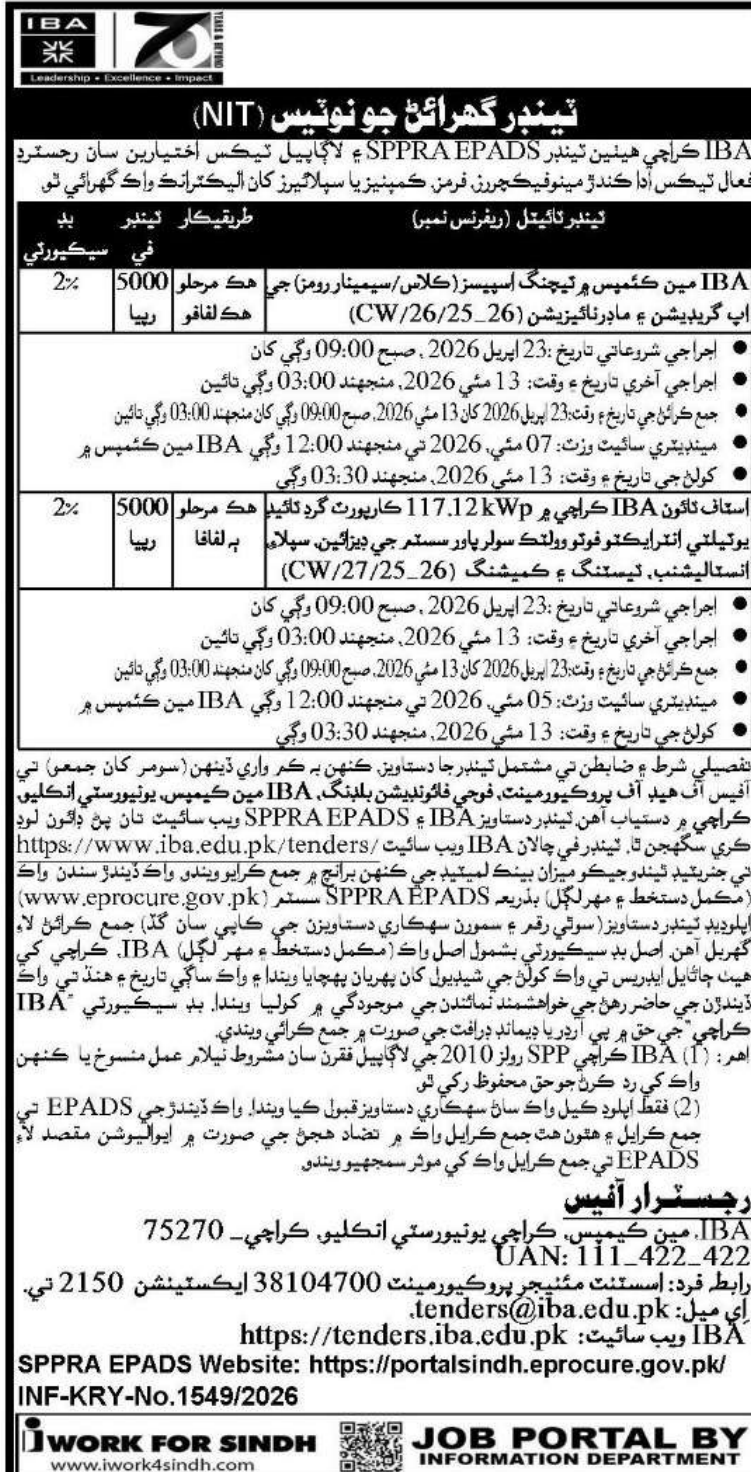 IBA
70
YEARS & BEYOND
Leadership • Excellence • Impact
ٽينڊر گهرائڻ جو نوٽيس (NIT)
IBA ڪراچي هيٺين ٽينڊر SPPRA EPADS ۽ لاڳاپيل ٽيڪس اختيارين سان رجسٽرڊ
فعال ٽيڪس ادا ڪندڙ مينوفيڪچررز، فرمز، ڪمپنيز يا سپلائيرز کان اليڪٽرانڪ واڪ گهرائي ٿو.
ٽينڊر ٽائيٽل (ريفرنس نمبر) طريقيڪار ٽينڊر في بڊ سيڪيورٽي
IBA مين ڪئمپس ۾ ٽيچنگ اسپيسز (ڪلاس/سيمينار رومز) جي هڪ مرحلو 5000 2%
اپ گريڊيشن ۽ ماڊرنائيزيشن (CW/26/25_26) هڪ لفافو رپيا
● اجرا جي شروعاتي تاريخ :23 اپريل 2026 ، صبح 09:00 وڳي کان
● اجرا جي آخري تاريخ ۽ وقت: 13 مئي 2026، منجهند 03:00 وڳي تائين
● جمع ڪرائڻ جي تاريخ ۽ وقت:23 اپريل 2026 کان 13 مئي 2026، صبح 09:00 وڳي کان منجهند 03:00 وڳي تائين
● مينڊيٽري سائيٽ وزٽ: 07 مئي، 2026 تي منجهند 12:00 وڳي IBA مين ڪئمپس ۾
● کولڻ جي تاريخ ۽ وقت: 13 مئي 2026، منجهند 03:30 وڳي
اسٽاف ٽائون IBA ڪراچي ۾ 117.12 kWp ڪارپورٽ گرڊ ٽائيڊ هڪ مرحلو 5000 2%
يوٽيلٽي انٽرايڪٽو فوٽو وولٽڪ سولر پاور سسٽم جي ڊيزائين، سپلاءِ، ٻه لفافا رپيا
انسٽاليشنب، ٽيسٽنگ ۽ ڪميشنگ (CW/27/25_26)
● اجرا جي شروعاتي تاريخ :23 اپريل 2026 ، صبح 09:00 وڳي کان
● اجرا جي آخري تاريخ ۽ وقت: 13 مئي 2026، منجهند 03:00 وڳي تائين
● جمع ڪرائڻ جي تاريخ ۽ وقت:23 اپريل 2026 کان 13 مئي 2026، صبح 09:00 وڳي کان منجهند 03:00 وڳي تائين
● مينڊيٽري سائيٽ وزٽ: 05 مئي، 2026 تي منجهند 12:00 وڳي IBA مين ڪئمپس ۾
● کولڻ جي تاريخ ۽ وقت: 13 مئي 2026، منجهند 03:30 وڳي
تفصيلي شرط ۽ ضابطن تي مشتمل ٽينڊر جا دستاويز، ڪنهن به ڪم واري ڏينهن (سومر کان جمعو) تي
آفيس آف هيڊ آف پروڪيورمينٽ، فوجي فائونڊيشن بلڊنگ، IBA مين ڪيمپس، يونيورسٽي انڪليو،
ڪراچي ۾ دستياب آهن. ٽينڊر دستاويز IBA ۽ SPPRA EPADS ويب سائيٽ تان پڻ ڊائون لوڊ
ڪري سگهجن ٿا. ٽينڊر في چالان IBA ويب سائيٽ https://www.iba.edu.pk/tenders/
تي جنريٽيڊ ٿيندو جيڪو ميزان بينڪ لميٽيڊ جي ڪنهن برانچ ۾ جمع ڪرايو ويندو. واڪ ڏيندڙ سندن واڪ
(مڪمل دستخط ۽ مهر لڳل) بذريعہ SPPRA EPADS سسٽم (www.eprocure.gov.pk)
اپلوڊيڊ ٽينڊر دستاويز (سوٽي رقم ۽ سمورن سهڪاري دستاويزن جي ڪاپي سان گڏ) جمع ڪرائڻ لاءِ
گهربل آهن. اصل بڊ سيڪيورٽي بشمول اصل واڪ (مڪمل دستخط ۽ مهر لڳل) IBA، ڪراچي کي
هيٺ ڄاڻايل ايڊريس تي واڪ کولڻ جي شيڊيول کان پهريان پهچايا ويندا ۽ واڪ ساڳي تاريخ ۽ هنڌ تي واڪ
ڏيندڙن جي حاضر رهڻ جي خواهشمند نمائندن جي موجودگي ۾ کوليا ويندا. بڊ سيڪيورٽي "IBA
ڪراچي" جي حق ۾ پي آرڊر يا ڊيمانڊ ڊرافٽ جي صورت ۾ جمع ڪرائي ويندي.
اهم: (1) IBA ڪراچي SPP رولز 2010 جي لاڳاپيل فقرن سان مشروط نيلام عمل منسوخ يا ڪنهن
واڪ کي رد ڪرڻ جو حق محفوظ رکي ٿو.
(2) فقط اپلوڊ ڪيل واڪ ساڻ سهڪاري دستاويز قبول ڪيا ويندا. واڪ ڏيندڙ جي EPADS تي
جمع ڪرايل ۽ هٿون هٿ جمع ڪرايل واڪ ۾ تضاد هجڻ جي صورت ۾ ايواليوشن مقصد لاءِ
EPADS تي جمع ڪرايل واڪ کي موثر سمجهيو ويندو.
رجسٽرار آفيس
IBA، مين ڪيمپس، ڪراچي يونيورسٽي انڪليو، ڪراچي_ 75270
UAN: 111_422_422
رابطہ فرد: اسسٽنٽ مئنيجر پروڪيورمينٽ 38104700 ايڪسٽينشن 2150 تي.
اِي ميل: tenders@iba.edu.pk،
IBA ويب سائيٽ: https://tenders.iba.edu.pk
SPPRA EPADS Website: https://portalsindh.eprocure.gov.pk/
INF-KRY-No.1549/2026
iWORK FOR SINDH
www.iwork4sindh.com
JOB PORTAL BY
INFORMATION DEPARTMENT